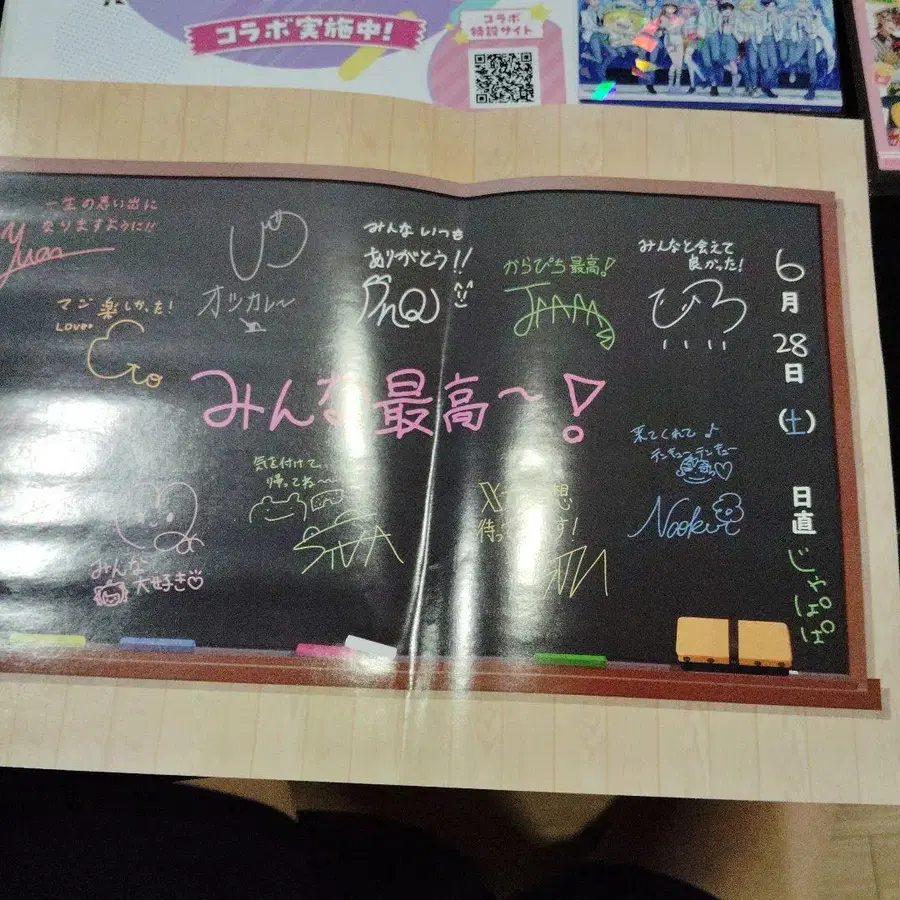 コラボ実施中!
コラボ
特設サイト
6月28日(土) 日直 じゃぱぱ
一生の思い出に
なりますように!!
Yuan
オツカレ〜
みんないつも
ありがとう!!
からぴち最高!
みんなと会えて
良かった!
ひろ
マジ楽しかった!
LOVE♡
みんな最高〜!
気を付けて
帰ってね〜
SIVA
来てくれて♪
テンキューテンキュー
Naokiri
みんな
大好き♡